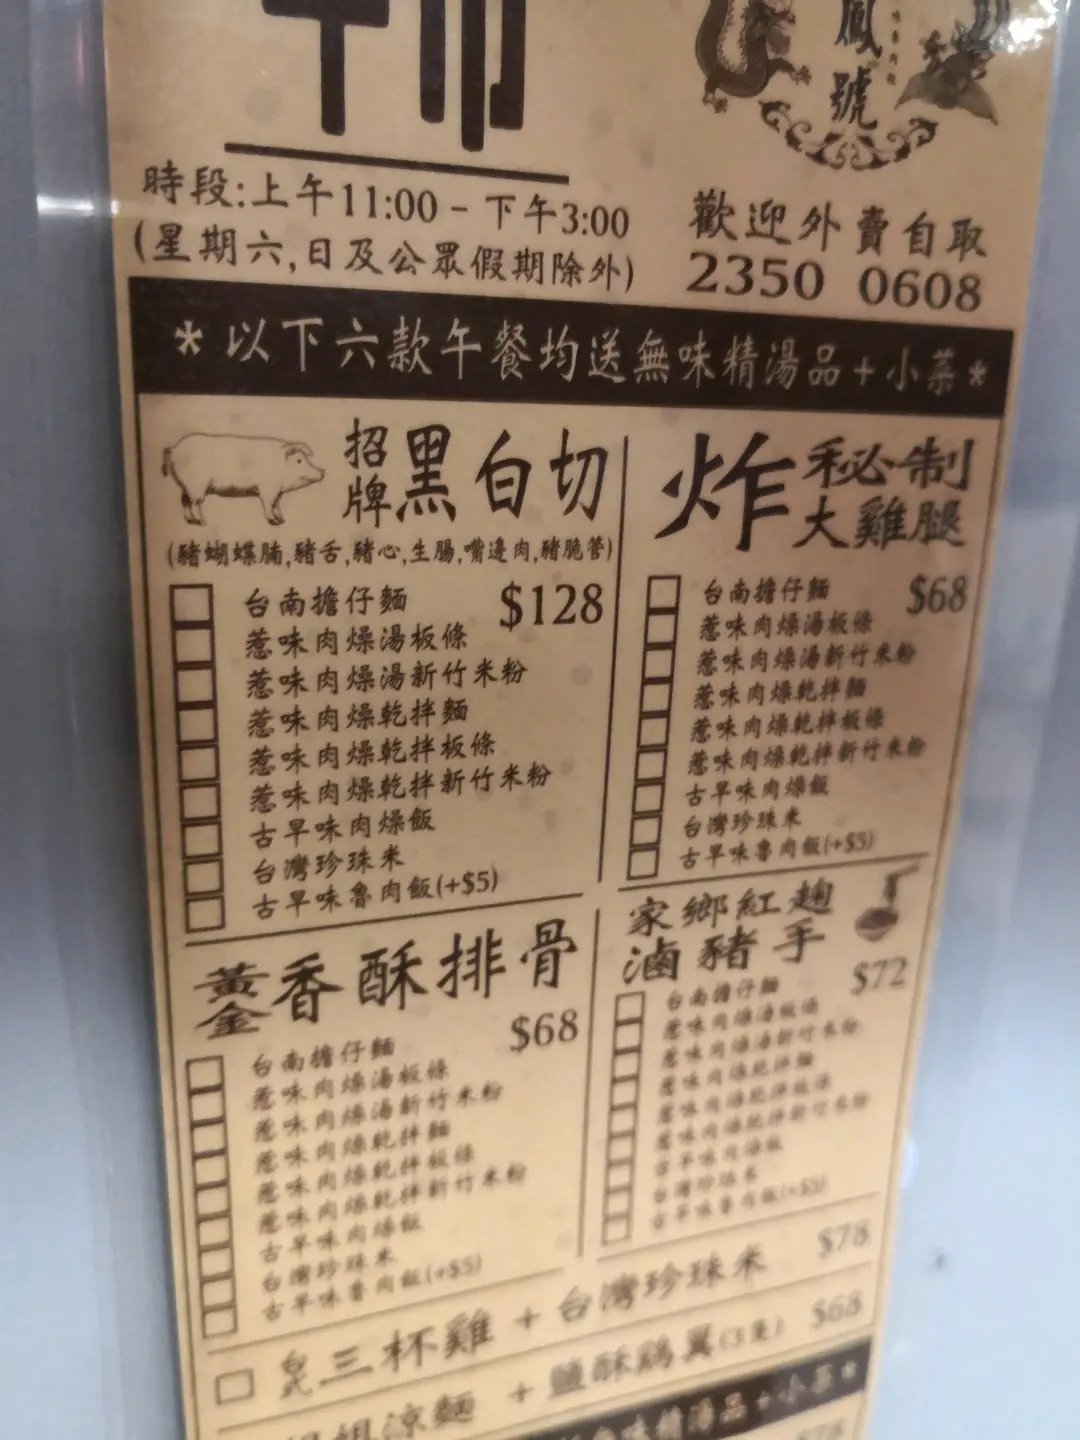 鳳號
時段:上午11:00 - 下午3:00
(星期六,日及公眾假期除外)
歡迎外賣自取
2350 0608
*以下六款午餐均送無味精湯品+小菜*
招牌黑白切
(豬蝴蝶腩,豬舌,豬心,生腸,嘴邊肉,豬脆管)
$128
台南擔仔麵
惹味肉燥湯板條
惹味肉燥湯新竹米粉
惹味肉燥乾拌麵
惹味肉燥乾拌板條
惹味肉燥乾拌新竹米粉
古早味肉燥飯
台灣珍珠米
古早味魯肉飯(+$5)
炸秘制大雞腿
$68
台南擔仔麵
惹味肉燥湯板條
惹味肉燥湯新竹米粉
惹味肉燥乾拌麵
惹味肉燥乾拌板條
惹味肉燥乾拌新竹米粉
古早味肉燥飯
台灣珍珠米
古早味魯肉飯(+$5)
黃金香酥排骨
$68
台南擔仔麵
惹味肉燥湯板條
惹味肉燥湯新竹米粉
惹味肉燥乾拌麵
惹味肉燥乾拌板條
惹味肉燥乾拌新竹米粉
古早味肉燥飯
台灣珍珠米
古早味魯肉飯(+$5)
家鄉紅麴
滷豬手
$72
台南擔仔麵
惹味肉燥湯板條
惹味肉燥湯新竹米粉
惹味肉燥乾拌麵
惹味肉燥乾拌板條
惹味肉燥乾拌新竹米粉
古早味肉燥飯
台灣珍珠米
古早味魯肉飯(+$5)
台式三杯雞 + 台灣珍珠米 $78
涼麵 + 鹽酥鷄翼(3隻) $68
無味精湯品+小菜*